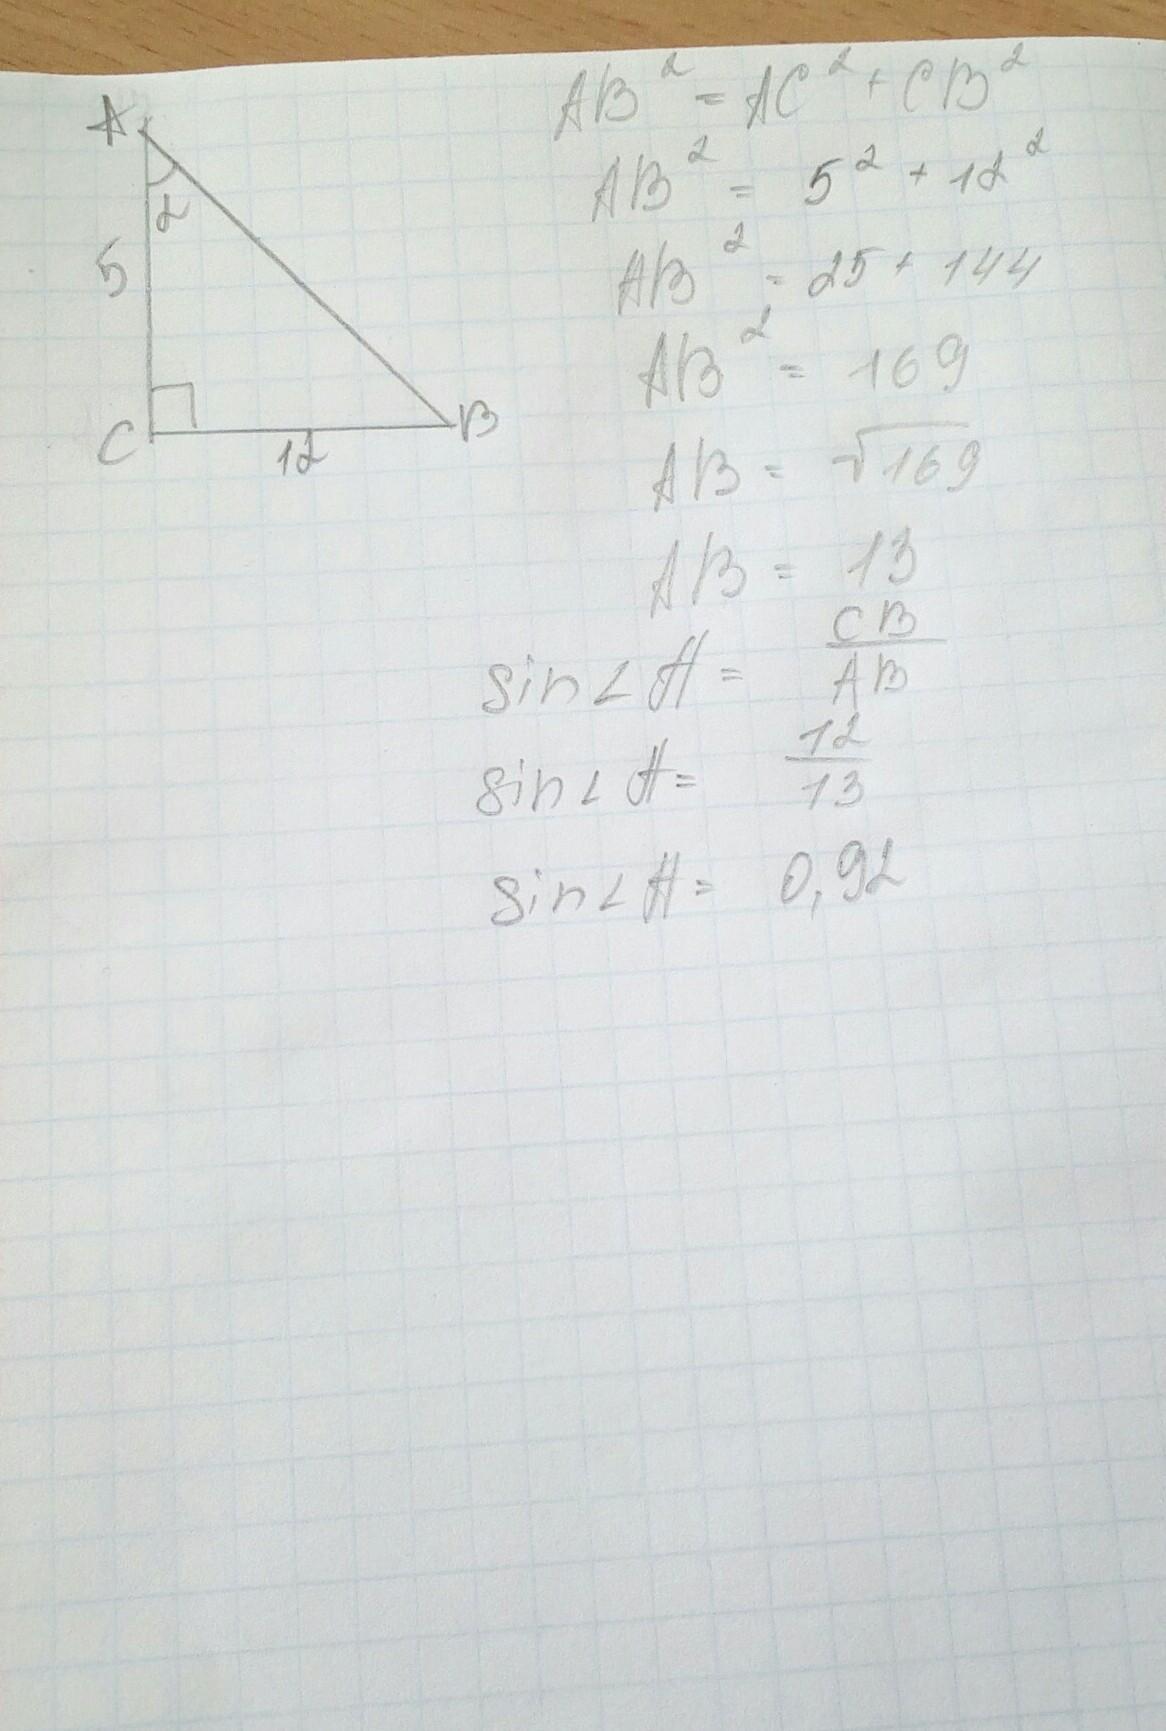 A
α
5
C
12
B
AB² = AC² + CB²
AB² = 5² + 12²
AB² = 25 + 144
AB² = 169
AB = √169
AB = 13
sin∠A = CB/AB
sin∠A = 12/13
sin∠A = 0,92